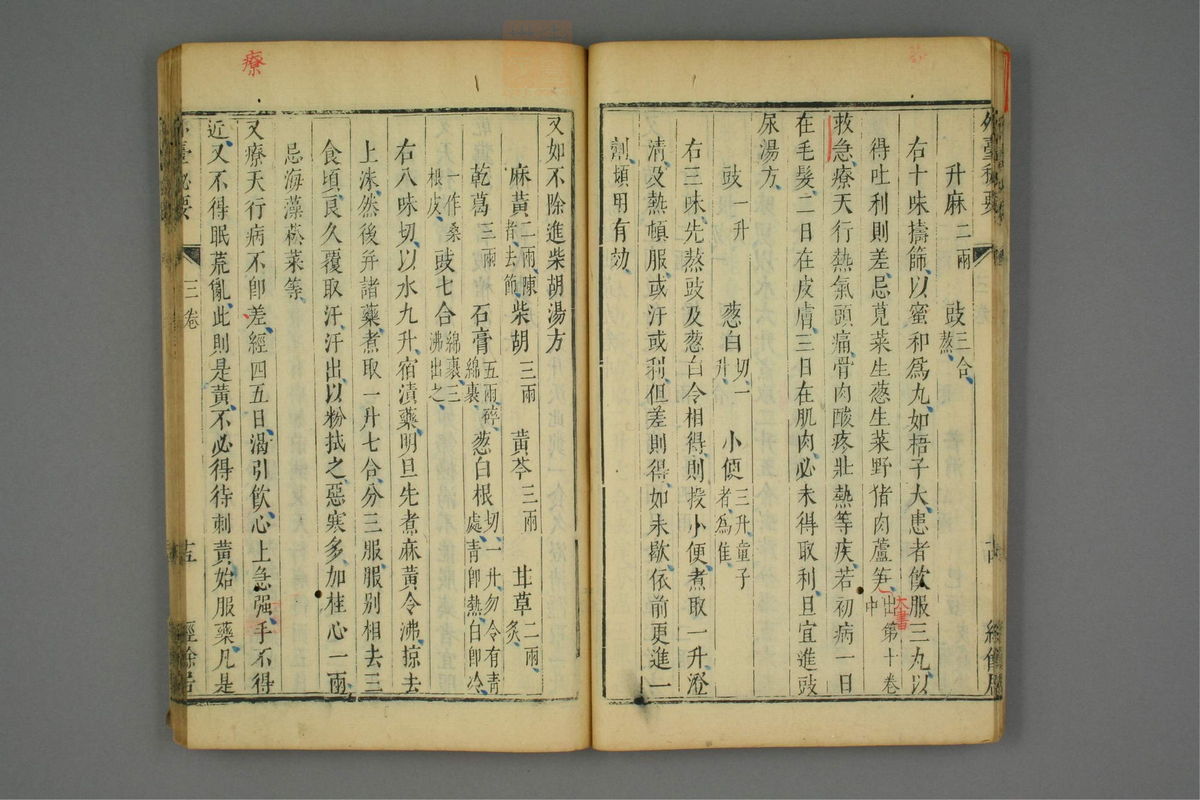 升麻二兩 豉三合熬
右十味擣篩以蜜和爲丸如梧子大患者飲服三丸以
得吐利則差忌莧菜生葱生菜野猪肉蘆笋出第十卷中
救急療天行熱氣頭痛骨肉酸疼壯熱等疾若初病一日
在毛髮二日在皮膚三日在肌肉必未得取利且宜進豉
尿湯方
豉一升 葱白切一升 小便三升童子者為佳
右三味先熬豉及葱白令相得則投小便煮取一升澄
清及熱頓服或汗或利但差則得如未歇依前更進一
劑頻用有効
十四
又如不除進柴胡湯方
麻黃二兩陳者去節 柴胡三兩 黃芩三兩 甘草二兩炙
乾葛三兩 石膏五兩碎綿裹 葱白根切一升勿令有青處青卽熱白卽冷
一作桑根皮 豉七合綿裹三沸出之
右八味切以水九升宿漬藥明旦先煮麻黃令沸掠去
上沫然後并諸藥煮取一升七合分三服服別相去三
食頃良久覆取汗汗出以粉拭之惡寒多加桂心一兩
忌海藻菘菜等
又療天行病不卽差經四五日渴引飲心上急强手不得
近又不得眠荒亂此則是黃不必得待刺黃始服藥凡是
三卷
十五
經餘居
療
大書